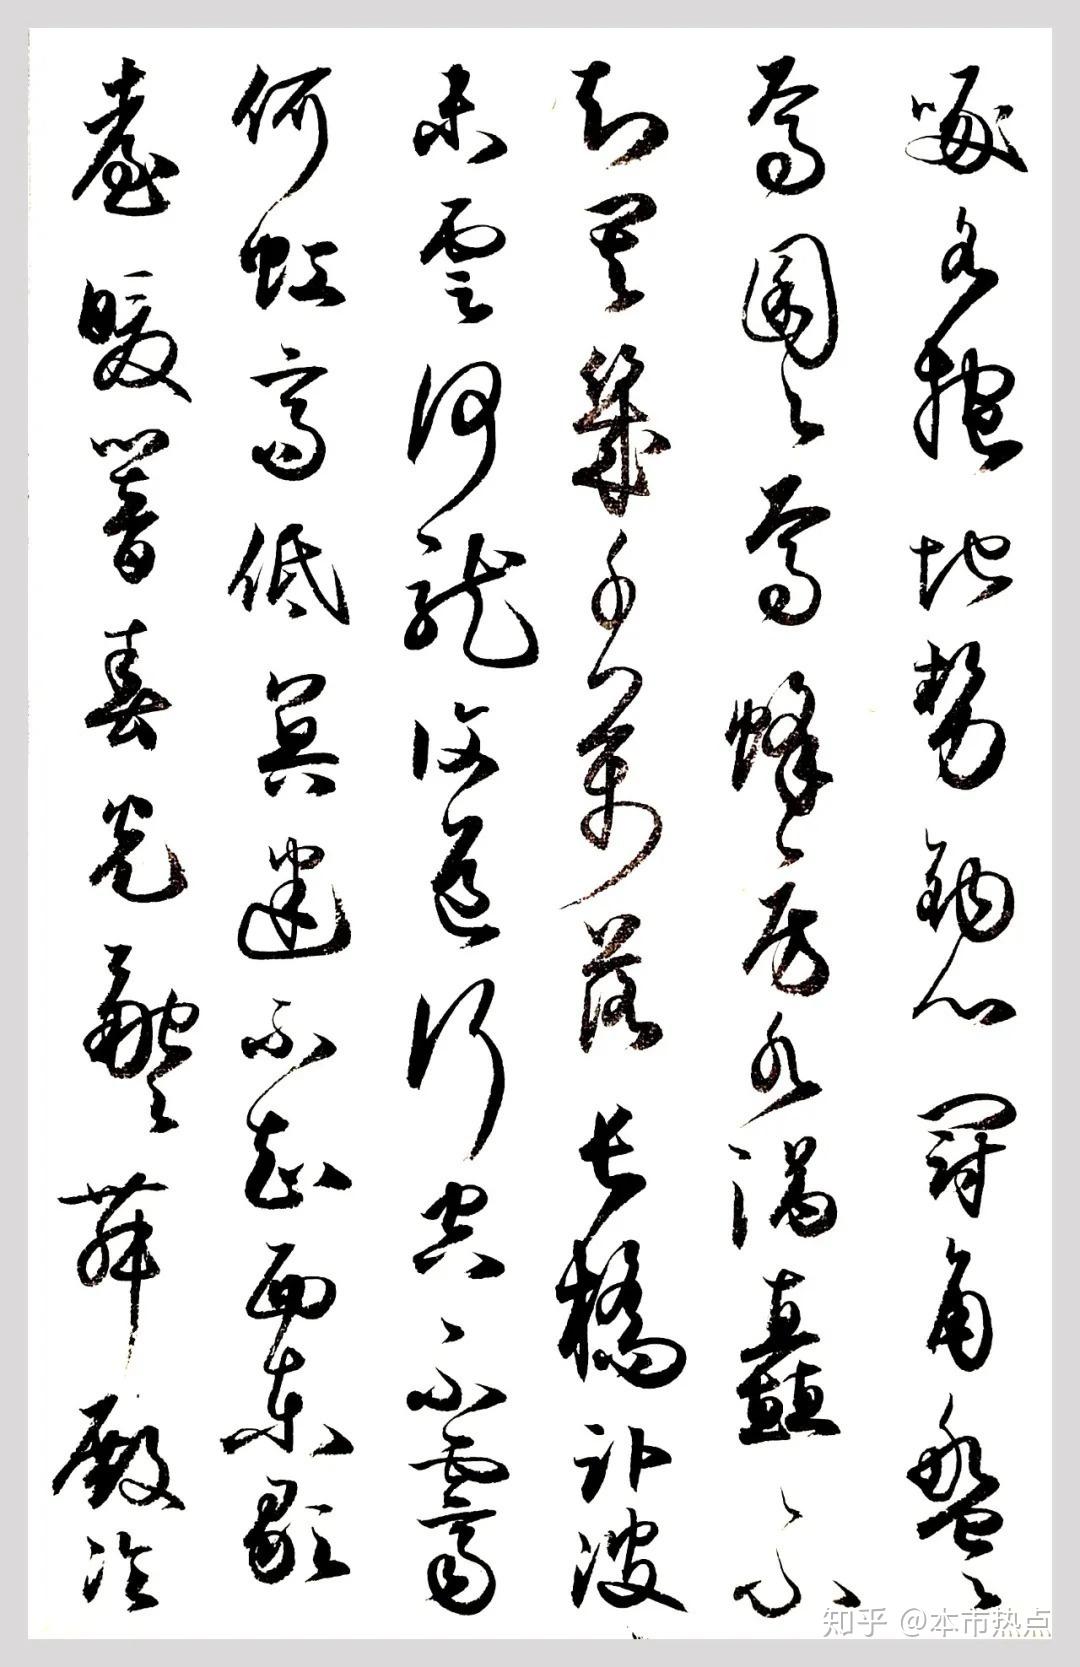 啄各抱地勢鈎心鬥角盤々
焉囷々焉蜂房水渦矗不
知其幾千萬落長橋臥波
未雲何龍復道行空不霽
何虹高低冥迷不知西東歌
臺暖響春光融々舞殿冷
知乎 @本市热点